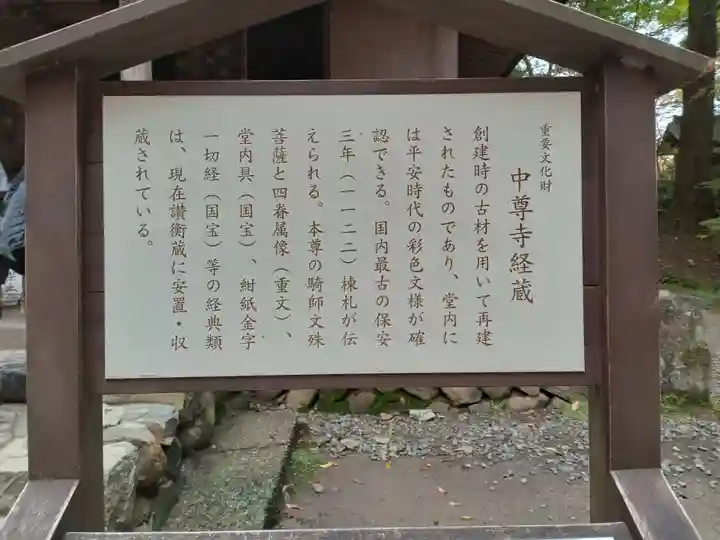 重要文化財
中尊寺経蔵
創建時の古材を用いて再建
されたものであり、堂内に
は平安時代の彩色文様が確
認できる。国内最古の保安
三年（一一二二）棟札が伝
えられる。本尊の騎師文殊
菩薩と四眷属像（重文）、
堂内具（国宝）、紺紙金字
一切経（国宝）等の経典類
は、現在讃衡蔵に安置・収
蔵されている。